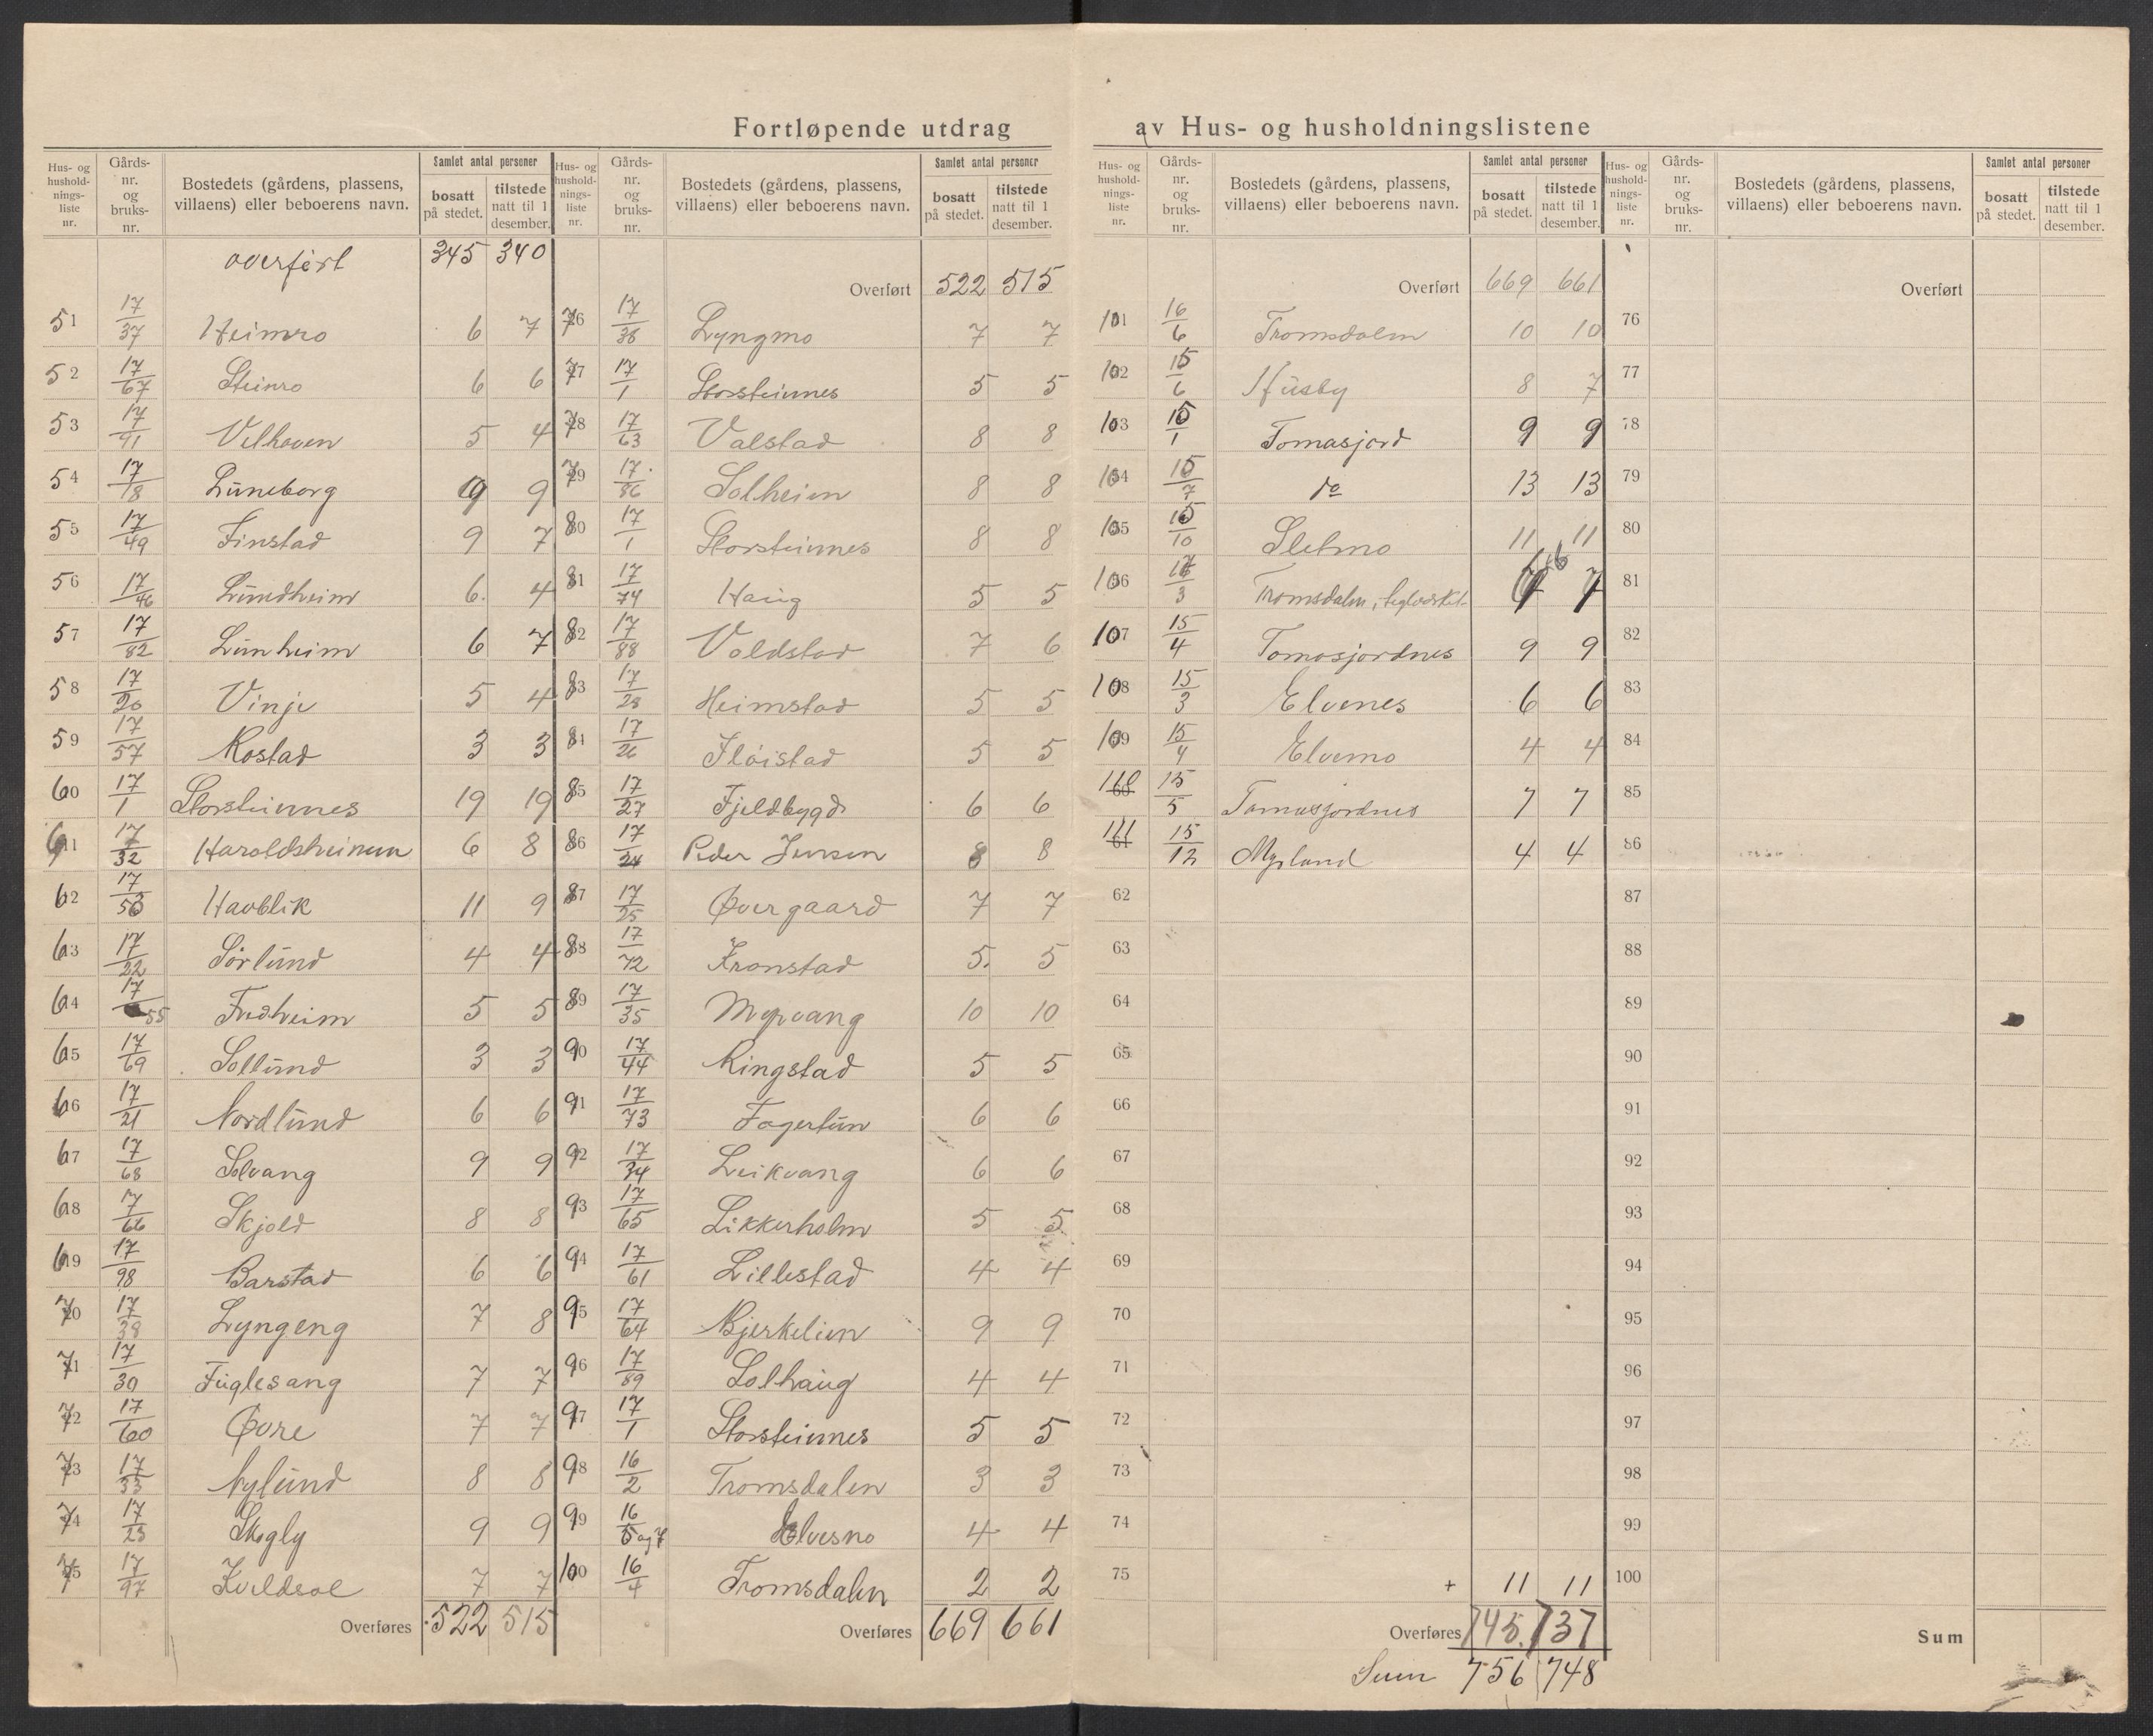 Fortløpende utdrag av Hus- og husholdningslistene
Hus- og husholdnings-liste nr. | Gårds-nr. og bruks-nr. | Bostedets (gårdens, plassens, villaens) eller beboerens navn. | Samlet antal personer | bosatt på stedet. | tilstede natt til 1 desember.
overført 345 340
51 17/37 Heimro 6 7
52 17/67 Steinro 6 6
53 17/91 Velhaven 5 4
54 17/18 Lüneborg 9 9
55 17/49 Finstad 9 7
56 17/46 Lündheim 6 4
57 17/82 Lünheim 6 7
58 17/20 Vinje 5 4
59 17/57 Rostad 3 3
60 17/1 Storsteinnes 19 19
61 17/32 Haroldsheimen 6 8
62 17/56 Havblik 11 9
63 17/22 Sørlünd 4 4
64 17/55 Fredheim 5 5
65 17/69 Sollünd 3 3
66 17/21 Nordlünd 6 6
67 17/68 Solvang 9 9
68 17/66 Skjold 8 8
69 17/98 Barstad 6 6
70 17/38 Lyngeng 7 8
71 17/30 Füglesang 7 7
72 17/60 Øvre 7 7
73 17/33 Nylünd 8 8
74 17/23 Skogly 9 9
75 17/97 Kveldsol 7 7
Overføres 522 515
Hus- og husholdnings-liste nr. | Gårds-nr. og bruks-nr. | Bostedets (gårdens, plassens, villaens) eller beboerens navn. | Samlet antal personer | bosatt på stedet. | tilstede natt til 1 desember.
Overført 522 515
76 17/38 Lyngmo 7 7
77 17/1 Storsteinnes 5 5
78 17/63 Valstad 8 8
79 17/86 Solheim 8 8
80 17/1 Storsteinnes 8 8
81 17/74 Haüg 5 5
82 17/88 Voldstad 7 6
83 17/28 Heimstad 5 5
84 17/26 Fløistad 5 5
85 17/27 Fjeldbygd 6 6
86 17/24 Peder Jensen 8 8
87 17/25 Øvergaard 7 7
88 17/72 Kronstad 5 5
89 17/35 Myrvang 10 10
90 17/44 Ringstad 5 5
91 17/73 Fagertün 6 6
92 17/34 Leikvang 6 6
93 17/65 Sikkerholm 5 5
94 17/61 Lillestad 4 4
95 17/64 Bjerkelien 9 9
96 17/89 Solhaüg 4 4
97 17/1 Storsteinnes 5 5
98 16/2 Tromsdalen 3 3
99 16/5 og 7 Elvesno 4 4
100 16/4 Tromsdalen 2 2
Overføres 669 661
Hus- og husholdnings-liste nr. | Gårds-nr. og bruks-nr. | Bostedets (gårdens, plassens, villaens) eller beboerens navn. | Samlet antal personer | bosatt på stedet. | tilstede natt til 1 desember.
Overført 669 661
101 16/6 Tromsdalen 10 10
102 15/6 Hüsby 8 7
103 15/1 Tomasjord 9 9
104 15/7 do 13 13
105 15/10 Sletmo 11 11
106 16/3 Tromsdalen, 7
107 15/4 Tomasjordnes 9 9
108 15/3 Elvenes 6 6
109 15/4 Elvemo 4 4
110 60 15/5 Tomasjordnes 7 7
111 61 15/12 Myrland 4 4
62
63
64
65
66
67
68
69
70
71
72
73
74
75 + 11 11
Overføres 745 737
Sum 756 748
Hus- og husholdnings-liste nr. | Gårds-nr. og bruks-nr. | Bostedets (gårdens, plassens, villaens) eller beboerens navn. | Samlet antal personer | bosatt på stedet. | tilstede natt til 1 desember.
Overført
76
77
78
79
80
81
82
83
84
85
86
87
88
89
90
91
92
93
94
95
96
97
98
99
100
Sum